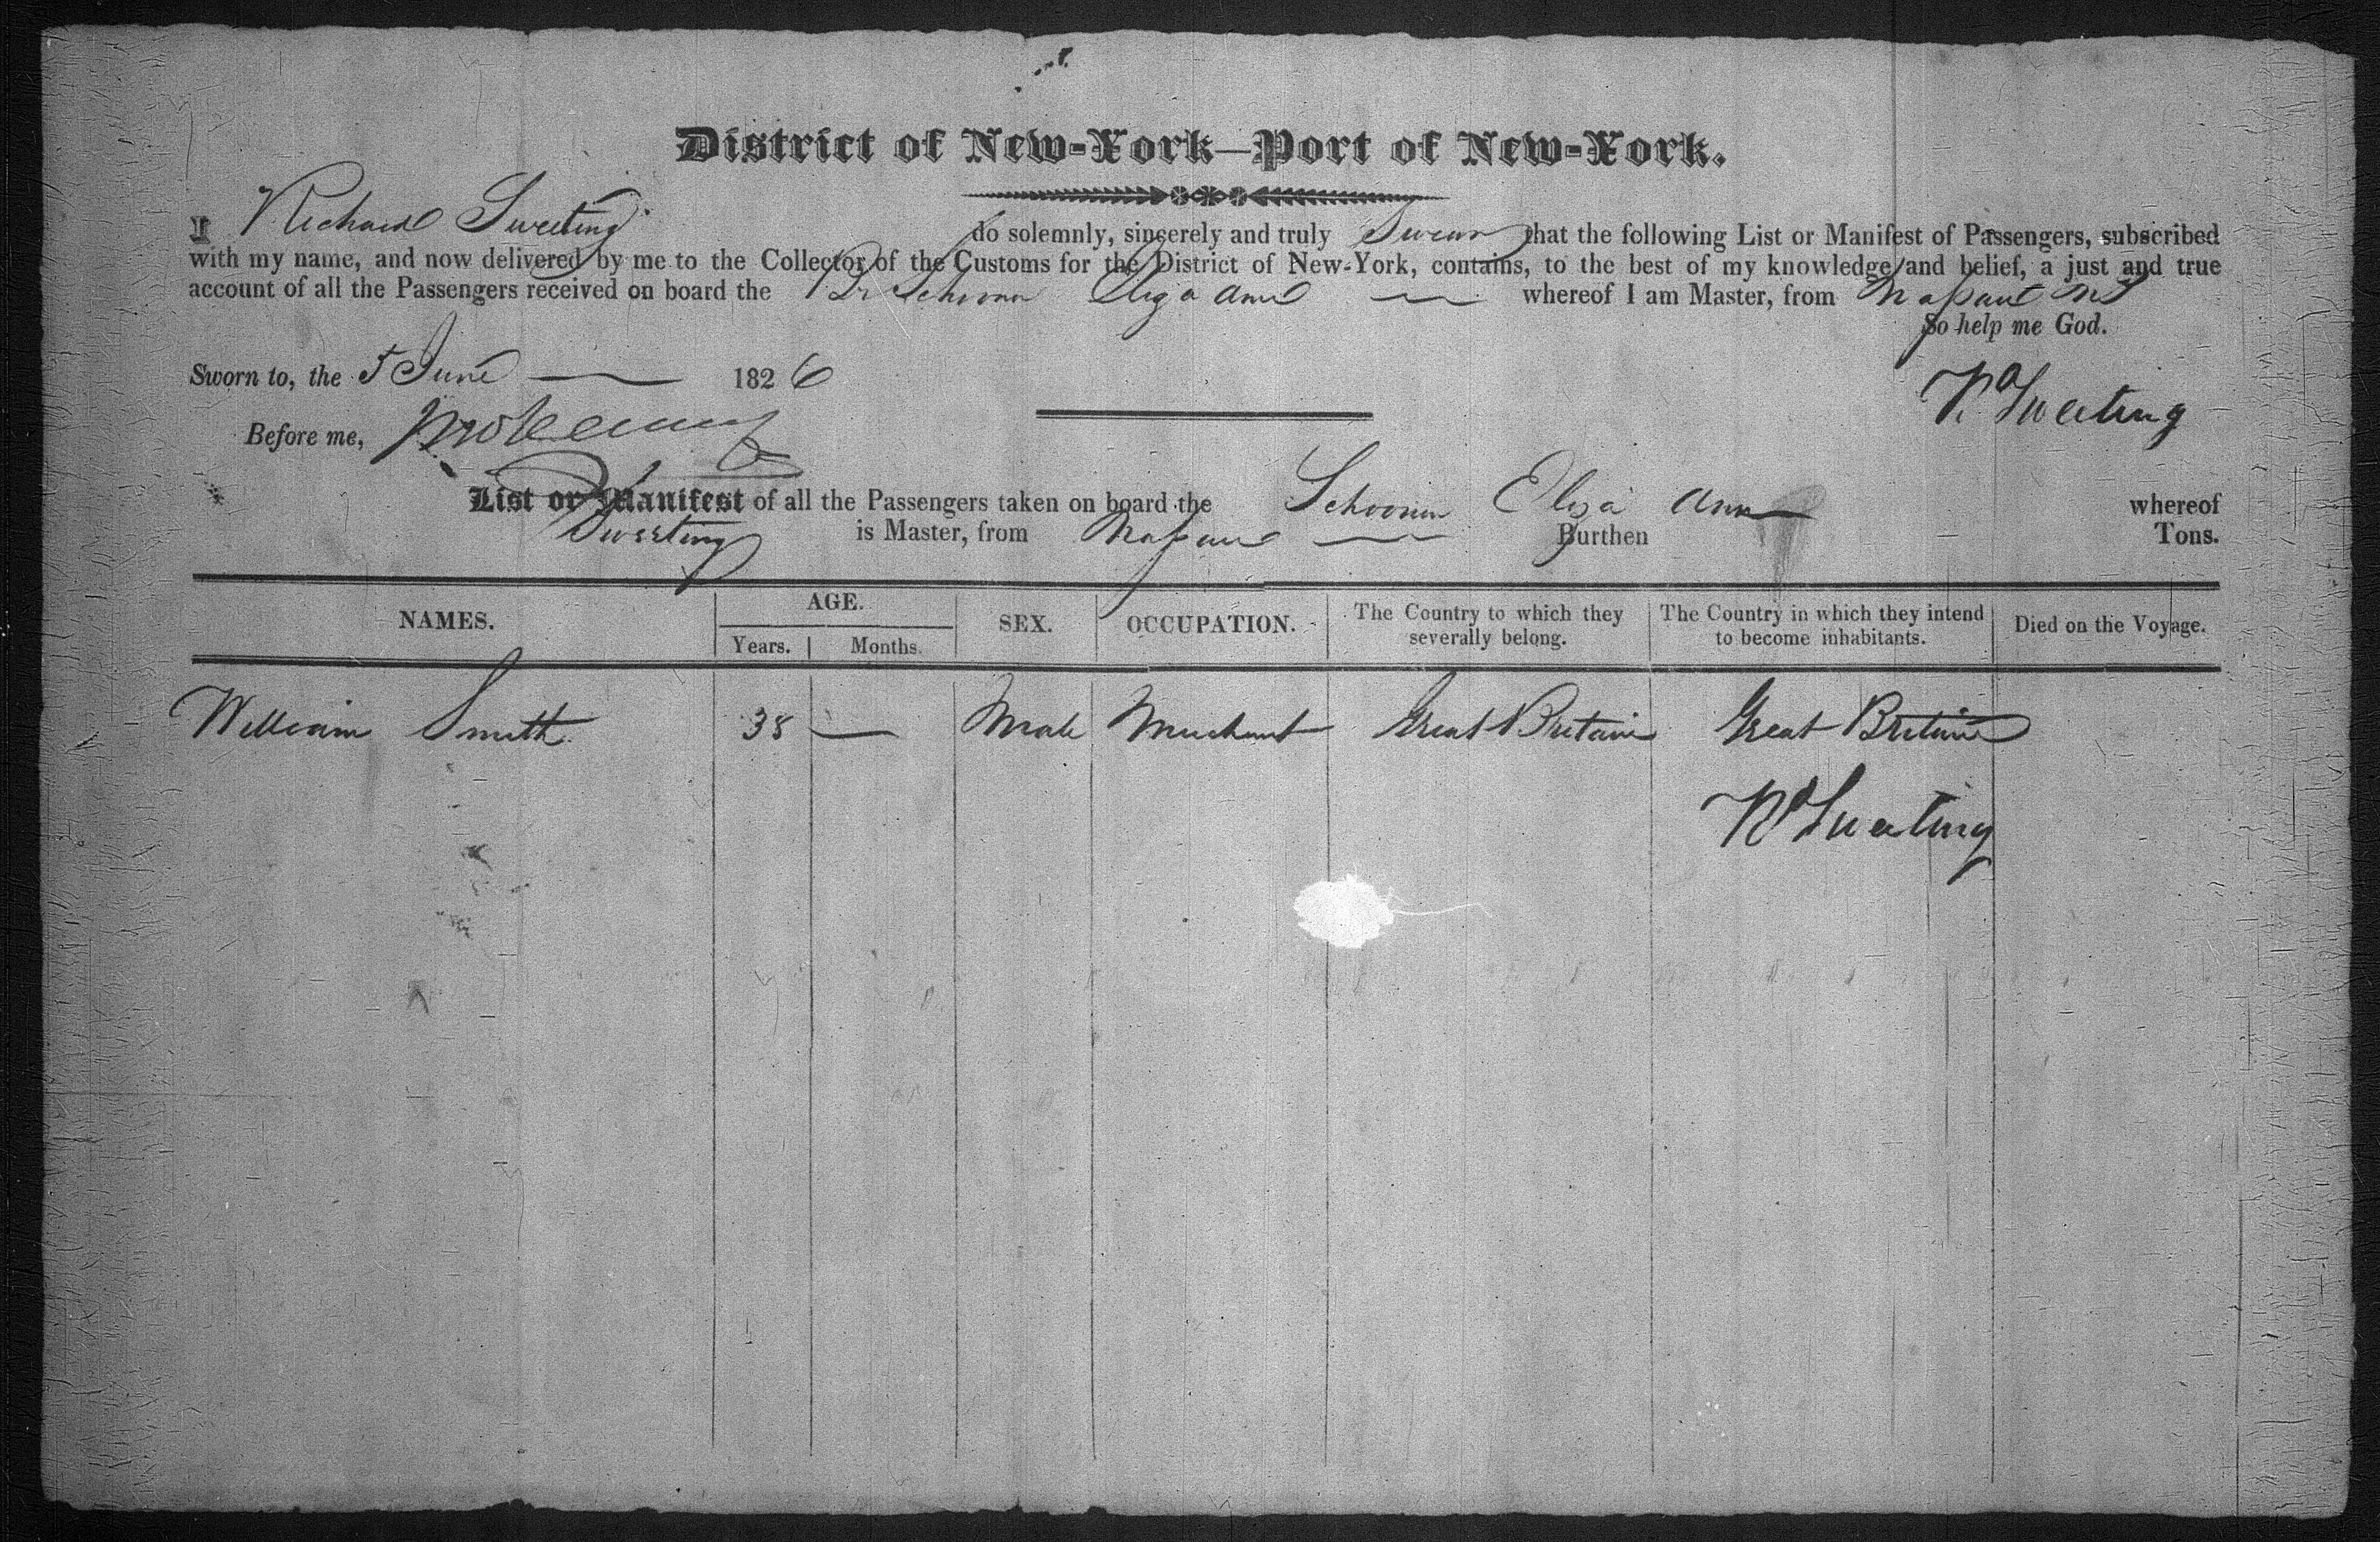 District of New-York—Port of New-York.
I Richard Sweeting do solemnly, sincerely and truly Swear that the following List or Manifest of Passengers, subscribed
with my name, and now delivered by me to the Collector of the Customs for the District of New-York, contains, to the best of my knowledge and belief, a just and true
account of all the Passengers received on board the Br Schooner Eliza Ann whereof I am Master, from Nassau NP
So help me God.
Sworn to, the 5 June 1826
Rd Sweeting
Before me,
List or Manifest of all the Passengers taken on board the Schooner Eliza Ann whereof
Sweeting is Master, from Nassau Burthen Tons.
NAMES. AGE. SEX. OCCUPATION. The Country to which they severally belong. The Country in which they intend to become inhabitants. Died on the Voyage.
Years. Months.
William Smith 38 — Male Merchant Great Britain Great Britain
Rd Sweeting